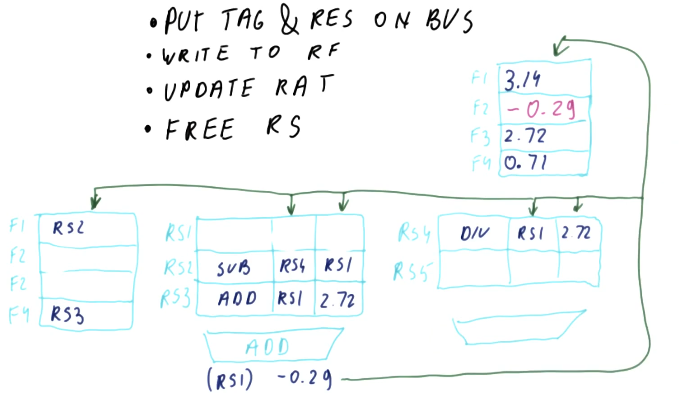 • PUT TAG & RES ON BUS
• WRITE TO RF
• UPDATE RAT
• FREE RS
F1 3.14
F2 -0.29
F3 2.72
F4 0.71
F1 RS2
F2
F2
F4 RS3
RS1
RS2 SUB RS4 RS1
RS3 ADD RS1 2.72
ADD
(RS1) -0.29
RS4 DIV RS1 2.72
RS5